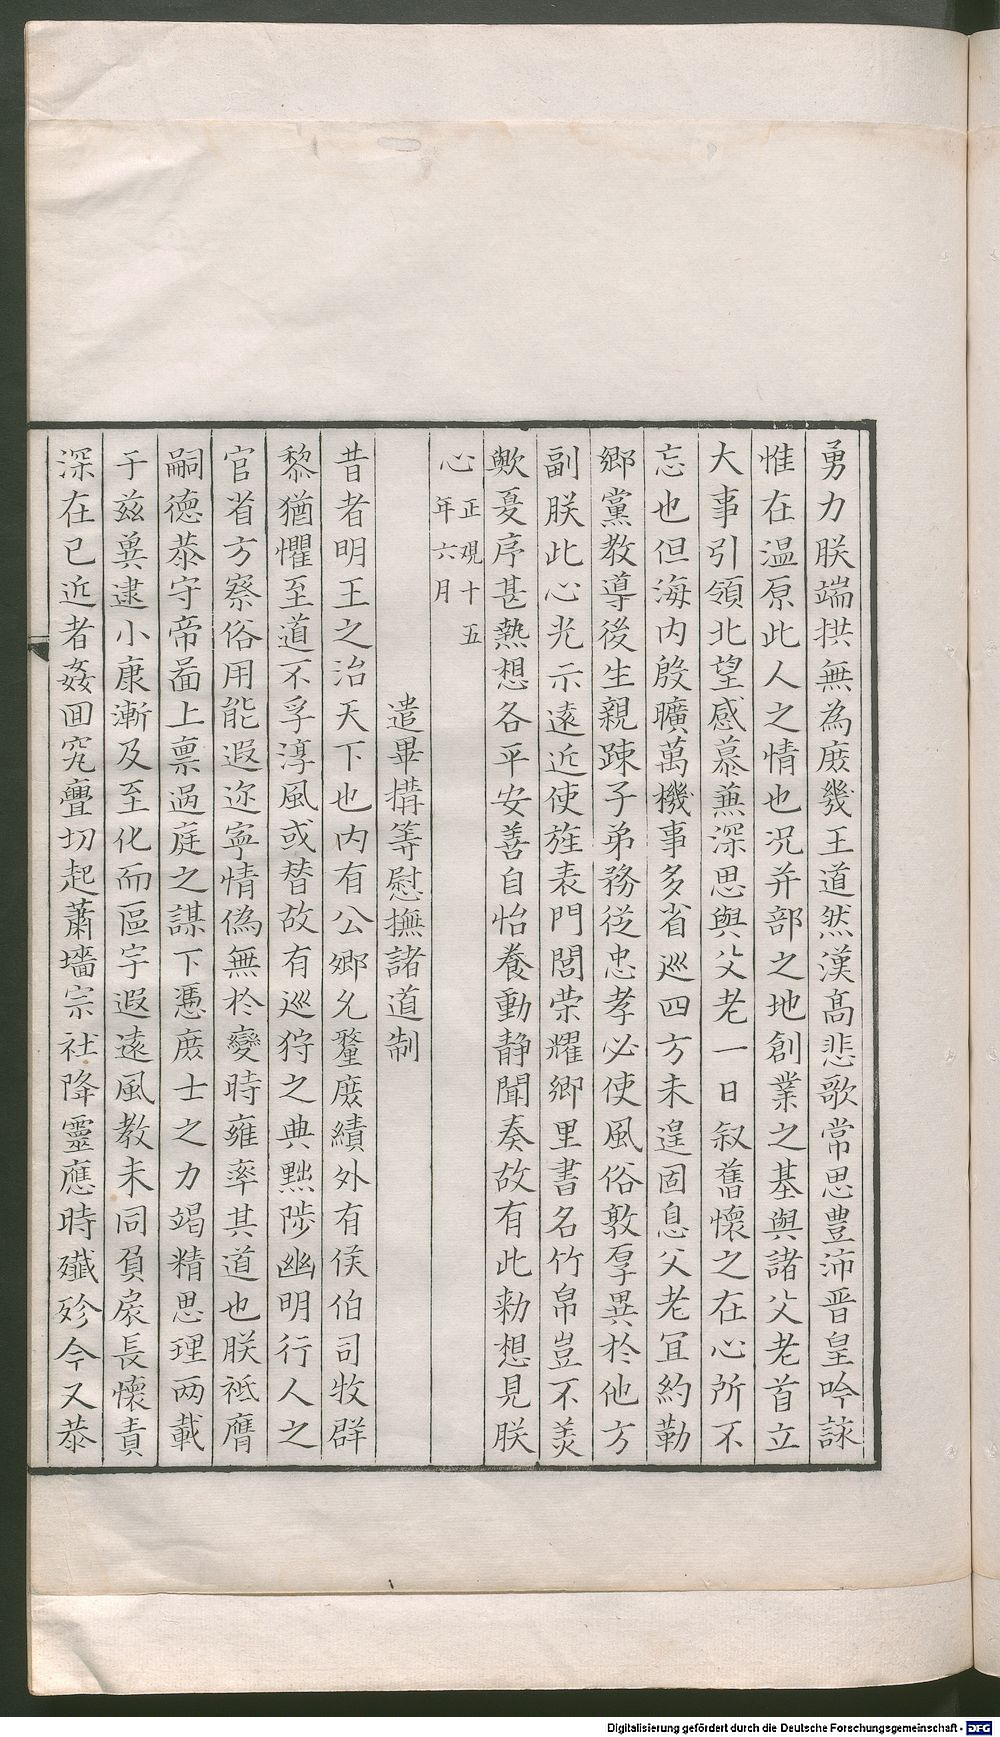 勇力朕端拱無為庻幾王道然漢髙悲歌常思豊沛晋皇吟詠
惟在温原此人之情也况并部之地創業之基與諸父老首立
大事引領北望感慕蕪深思與父老一日叙舊懷之在心所不
忘也但海内殷曠萬機事多省巡四方未遑固息父老冝約勒
鄉黨教導後生親踈子弟務從忠孝必使風俗敦厚異於他方
副朕此心光示遠近使旌表門閭荣耀鄉里書名竹帛豈不羙
歟夏序甚熱想各平安善自怡養動静聞奏故有此勑想見朕
心正观十五年六月
遣畢搆等慰撫諸道制
昔者明王之治天下也内有公卿允釐庻績外有侯伯司牧群
黎猶懼至道不孚淳風或替故有巡狩之典黜陟幽明行人之
官省方察俗用能遐迩寧情偽無於變時雍率其道也朕祗膺
嗣德恭守帝啚上禀過庭之謀下憑庻士之力竭精思理两載
于兹兾逮小康漸及至化而區宇遐遠風教未同負扆長懷責
深在己近者姦囬究亹切起蕭墻宗社降靈應時殲殄今又恭
Digitalisierung gefördert durch die Deutsche Forschungsgemeinschaft - DFG